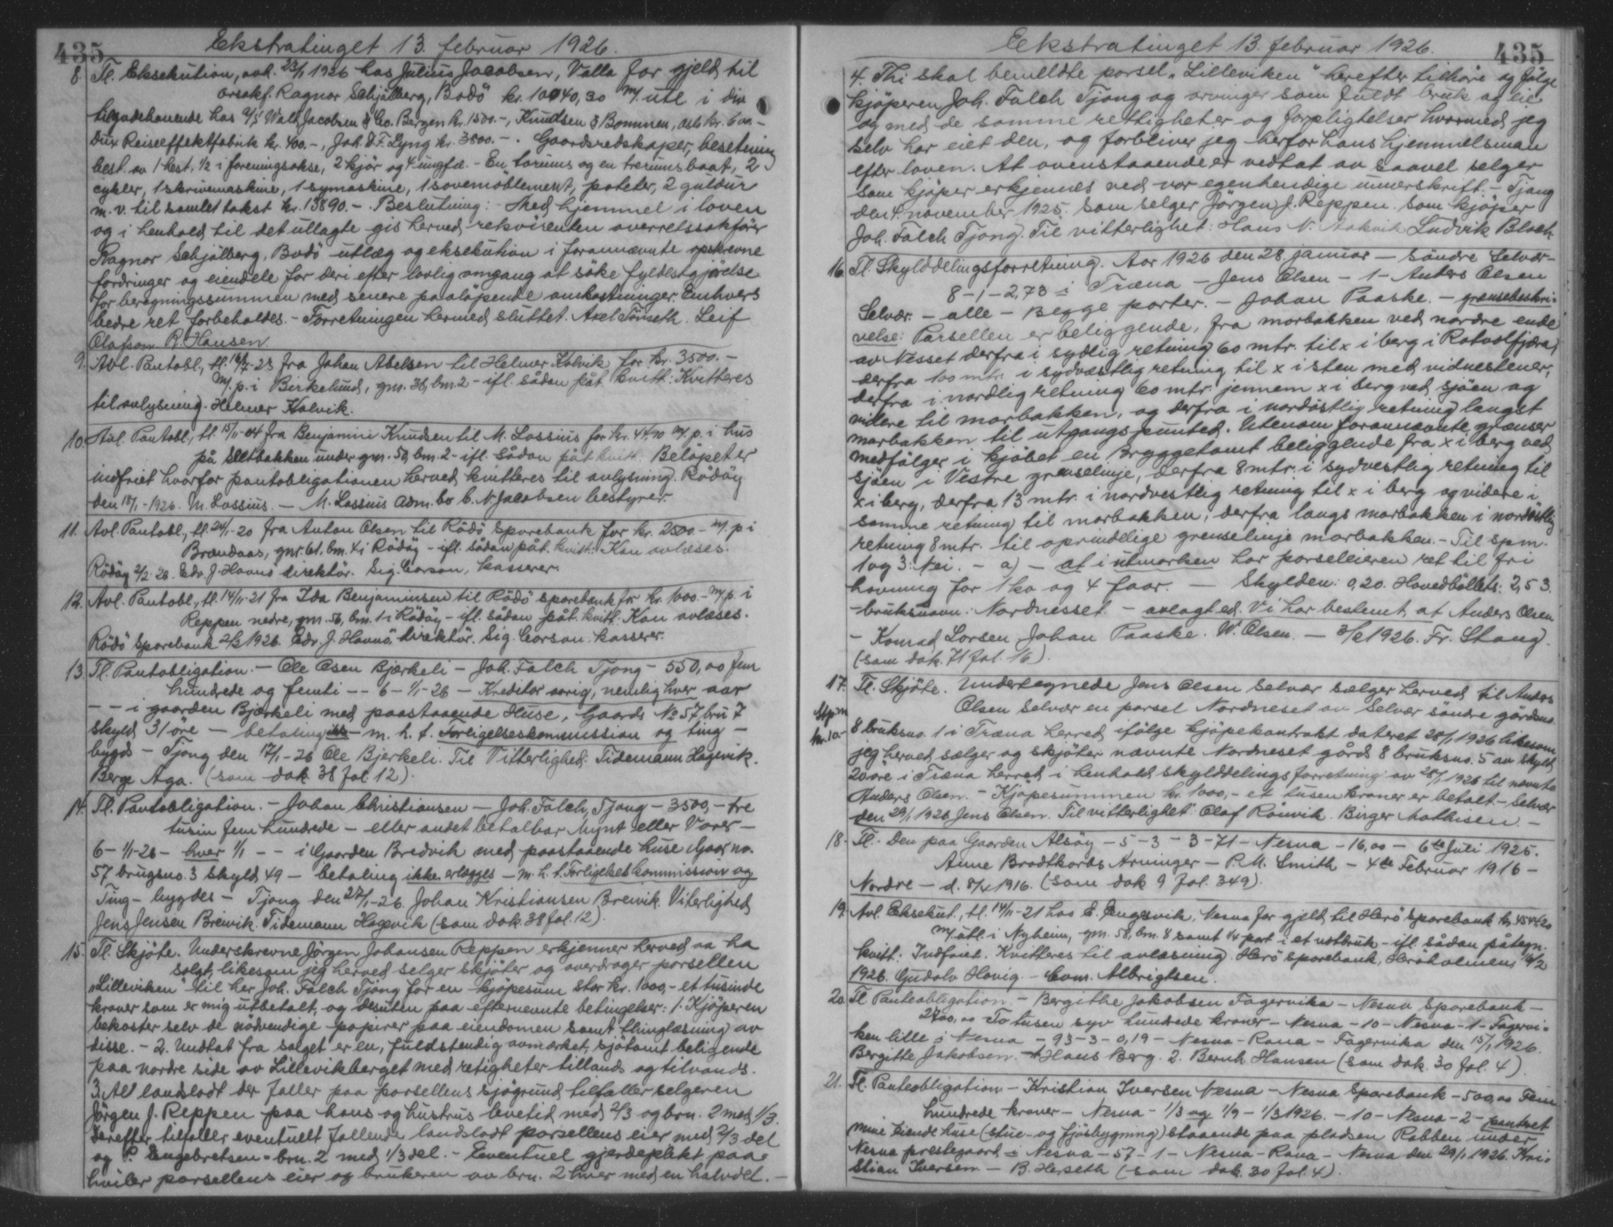 435
Ekstratinget 13. februar 1926.
8. Tl. Eksekution, avh. 23/1 1926 hos Julius Jacobsen, Valla for gjeld til
orsakf. Ragnar Schjølberg, Bodö kr. 10040,30 m/ utl. i div
tilgodehavende hos A/S Wall. Jacobsen & Co. Bergen kr. 1500.-, Knudtsen & Bommen, Oslo kr. 600.-
Dux Reiseeffektfabrik kr. 400.-, Joh. D. F. Lyng kr. 3800.- . Gaardsredskaper, besetning
best. av 1 hest, 1/2 i foreningsokse, 2 kjør og 4 ungfæ. - En torums og en trerumsbaat, 2
cykler, 1 skrivemaskine, 1 symaskine, 1 sovemöblement, poteter, 2 guldur
m.v. til samlet takst kr. 13890.- . Beslutning: Med hjemmel i loven
og i henhold til det utlagte gis herved rekvisenten overretssakförer
Ragnar Schjølberg, Bodö utlæg og eksekution i forannævnte opskrevne
fordringer og eiendele for deri efter lovlig omgang at söke fyldestgjörelse
for beregningssummen med senere paalöpende omkostninger. Enhvers
bedre ret forbeholdes. - Forretningen hermed sluttet. Axel Tömseth. Leif
Olafson R. Hansen
9. Avl. Pantobl, tl. -23 fra Johan Abelsen til Helmer Kolvik for kr. 3500.-
m/p. i Birkelund, gnr. 38, bm. 2 - ifl. sådan påt. kvitt: Kvitteres
til avlysning. Helmer Kolvik.
10. Avl. Pantobl, tl. 15/11-04 fra Benjamin Knudsen til M. Lossius for kr. m/p. i hus
på Sletbakken under gnr. 50, bm. 2 - ifl. sådan påt. kvitt. Belöpet er
indfriet hvorfor pantobligationen herved kvitteres til avlysning. Rödöy
den 18/1-1926. M. Lossius. - M. Lossius Adm. bo C. N. Jacobsen bestyrer.
11. Avl. Pantobl, tl. 24/1-20 fra Anton Olsen til Rödö Sparebank for kr. 2500.- m/p i
Brandaas, gnr. 61, bm. 4 i Rödöy - ifl. sådan påt. kvitt: Kan avlæses.
Rödöy 2/2 26. Edv. J. Havnö direktör. Sig. Corson, kasserer.
12. Avl. Pantobl, tl. 14/11-21 fra Ida Benjaminsen til Rödö sparebank for kr. 1000.- m/p. i
Reppen nedre, gnr. 56, bm. 1 i Rödöy - ifl. sådan påt. kvitt. Kan avlæses.
Rödö Sparebank 2/2 1926. Edv. J. Havnö direktör. Sig. Corson. kasserer.
13. Tl. Pantobligation. - Ole Olsen Bjørkeli - Joh. Falch Tjong - 550,00 fem
hundrede og femti - - 6 - 1/1-26 - Kreditor aarig, nemlig hver aar
- - i gaarden Bjørkeli med paastaaende Huse, Gaards No 57, bru 7
skyld 31 öre - betaling - m. h. t. Forligelseskommission og ting -
bygds - Tjong den 12/1-26 Ole Bjerkeli. Til Vitterlighed: Tidemann Hagevik.
Berge Aga. (som dok 38 fol 12).
14. Tl. Pantobligation. - Johan Christiansen - Joh. Falch, Tjong - 3500,- tre
tusin fem hundrede - eller andet betalbar Mynt eller Varer -
6 - 1/1-26 - hver 1/1 - - i Gaarden Bredvik med paastaaende huse Gaar no.
57 brugsno. 3 Skyld 49 - betaling ikke erlægges - m. h. t. Forligelseskommission og
Ting - bygdes - Tjong den 27/1-26. Johan Kristiansen Breivik. Viterlighed
Jens Jensen Breivik. Tidemann Hagevik (som dok. 38 fol. 12).
15. Tl. Skjöte. Underskrevne Jörgen Johansen Reppen erkjenner herved aa ha
solgt, likesom jeg herved selger skjöter og overdrager parsellen
"Lilleviken" til her Joh. Falch Tjong for en kjöpesum stor kr. 1000,- et tusinde
kroner som er mig utbetalt, og desuten paa efternevnte betingelser: 1. Kjöperen
bekoster selv de nödvendige papirer paa eiendomen samt thinglæsning av
disse. - 2. Undtat fra salget er en, fuldstendig avmerket, sjötomt beligende
paa nordre side av Lillevikberget med retigheter tillands og tilvands.
3. Alt landslodt der faller paa parsellens sjögrund tilfaller selgeren
Jörgen J. Reppen paa hans og hustrus levetid med 2/3 og bru. 2 med 1/3.
Derefter tilfaller eventuelt fallende landslodt parsellens eier med 2/3 del
og P. Engebretsen - bru. 2 med 1/3 del. - Eventuel gjerdeplikt paa-
hviler parsellens eier og brukeren av bru. 2 hver med en halvdel. -
435
Ekstratinget 13. februar 1926.
4. Thi skal bemeldte parsel "Lilleviken" herefter tilhöre og fölge
kjöperen Joh. Falch Tjong og arvinger som fuldt bruk og eie
og med de samme retligheter og forpligtelser hvormed jeg
selv har eiet den, og forbliver jeg herfor hans hjemmelsman
efter loven. At ovenstaaende er vedtat av saavel selger
som kjöper erkjennes ved vor egenhendige underskrift. - Tjong
den 4. november 1925. Som selger Jörgen J. Reppen. Som kjöper
Joh. Falch Tjong. Til vitterlighet: Hans N. Aakvik Ludvik Bloch
16. Tl. Skylddelingsforretning. Aar 1926 den 28 januar - söndre Selvær -
8 - 1 - 2,73 i Træna - Jens Olsen - 1 - Anders Olsen
Selvær. - alle - Begge parter. - Johan Paaske. - grensebeskri-
velse: Parsellen er beliggende, fra marbakken ved nordre ende
av Nesset derfra i sydlig retning 60 mtr. til x i berg i Rotvolfjæra,
derfra 100 mtr. i sydvestlig retning til x i sten med vidnestener,
derfra i nordlig retning 60 mtr. jennem x i berg ved sjöen og
videre til marbakken, og derfra i nordöstlig retning langst
marbakken til utgangspunted. Utenom forannævnte grænser
medfölger i kjöbet en Bryggetomt beliggende fra x i berg ved
sjöen i Vestre grenselinje, derfra 8 mtr. i sydvestlig retning til
x i berg, derfra 13 mtr. i nordvestlig retning til x i berg og videre i
samme retning til marbakken, derfra langs marbakken i nordöstlig
retning 8 mtr. til oprindelige grenselinje marbakken. - Til spm.
1 og 3: Nei. - a) - at i utmarken har parselleieren ret til fri
havning for 1 ko og 4 faar. - Skylden: 0,20. Hovedböllets: 2,53
- bruksnavn: Nordnesset - avlagt ed. Vi har bestemt at Anders Olsen
- Konrad Larsen Johan Paaske. W. Olsen. - 3/2 1926. Fr. Stang.
(som dok. 71 fol. 16).
17. Tl. Skjöte. Undertegnede Jens Olsen Selvær sælger herved til Anders
Olsen Selvær en parsel Nordneset av Selvær söndre gårdsno.
8 bruksno. 1 i Træna herred ifölge kjöpekontrakt dateret 28/1 1926 likesom
jeg herved sælger og skjöter nævnte Nordneset gård 8 bruksno. 5 av skyld
20 öre i Træna herred i henhold skylddelingsforretning av 28/1 1926 til nævnte
Anders Olsen. - Kjöpesummen kr. 1000,- et tusen kroner er betalt - Selvær
den 29/1 1926 Jens Olsen. Til vitterlighet: Olaf Rönvik. Birger Mathisen. -
18. Tl. Den paa Gaarden Alsöy - 5 - 3 - 3 - 71 - Nesna - 16,00 - 6te Juli 1925.
Anne Brodtkorbs Arvinger - P. M. Smith - 4de Februar 1916 -
Nordre - d. 1916. (som dok 9 fol. 349).
19. Avl. Eksekut., tl. 14/11-21 hos E. Jengsvik, Nesna for gjeld til Herö Sparebank kr.
m/utl. i Nyheim, gnr. 58, bm. 8 samt 1/4 part i et notbruk - ifl. sådan påtegn.
kvitt: Indfriet. Kvitteres til avlæsning. Herö Sparebank, Heröholmens
1926. Gudolv Hovig - Com. Albrigtsen.
20. Tl. Panteobligation. - Bergithe Jakobsen Fagervika - Nesna Sparebank -
2700,00 To tusen syv hundrede kroner - Nesna - 10 - Nesna - 1 - Fagervi-
ken lille i Nesna - 93 - 3 - 0,19 - Nesna - Rana - Fagervika den 15/1 1926.
Bergitte Jakobsen. Hans Berg. 2. Bernh. Hansen (som dok. 30 fol. 4).
21. Tl. Panteobligation - Kristian Iversen Nesna - Nesna Sparebank - 500,00 Fem
hundrede kroner - Nesna - 1/3 og 1/9 - 1/3 1926. - 10 - Nesna - 2 - pantret
mine eiende huse (stue - og fjösbygning) staaende paa pladsen Rabben under
Nesna prestegaard - Nesna - 57 - 1 - Nesna - Rana - Nesna den 29/1 1926. Kri-
stian Iversen - B. Herseth (som dok. 30 fol. 4).